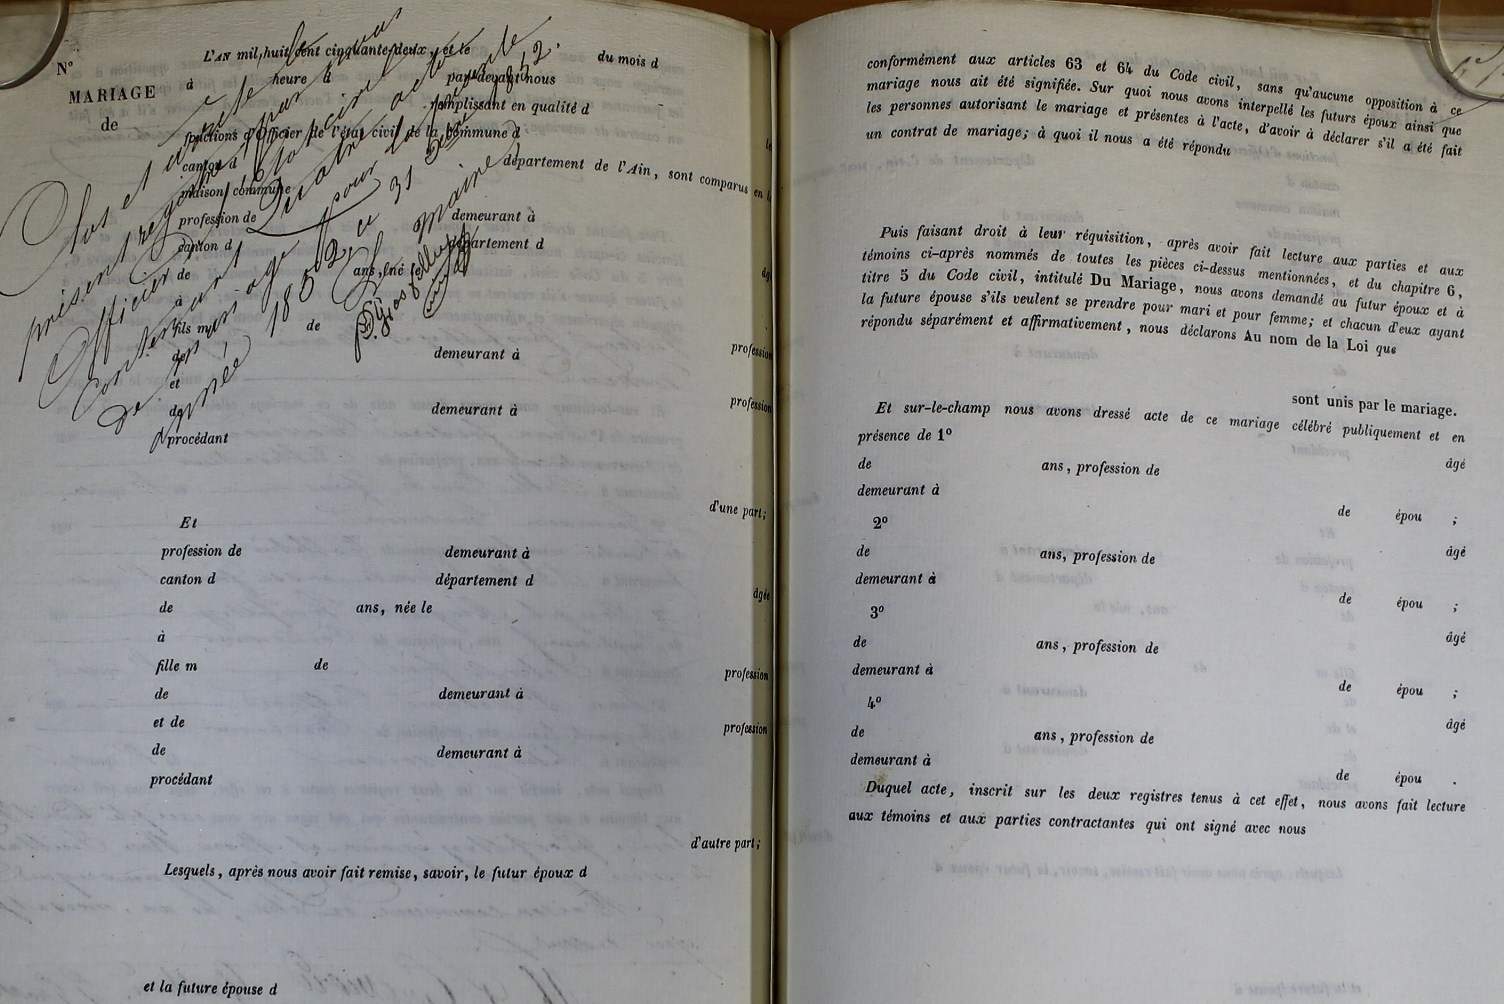 N°
MARIAGE
de
L'AN mil huit cent cinquante-deux, et le du mois d
à heure à par-devant nous
remplissant en qualité d
fonctions d'Officier de l'état civil de la commune d
canton d département de l'Ain, sont comparus en l
maison commune
profession de demeurant à
canton d département d
de ans, né le
à
fils m de
de demeurant à profession
et
de demeurant à profession
procédant
d'une part;
Et
profession de demeurant à
canton d département d
de ans, née le âgée
à
fille m de
de demeurant à profession
et de
de demeurant à profession
procédant
d'autre part;
Lesquels, après nous avoir fait remise, savoir, le futur époux d
et la future épouse d
Clos et arrêté le
présent registre par nous
Officier de l'état civil
contenant quatre actes
de mariage pour la présente
année 1852 ce 31 Décembre 1852.
Le Maire
conformément aux articles 63 et 64 du Code civil, sans qu'aucune opposition à ce
mariage nous ait été signifiée. Sur quoi nous avons interpellé les futurs époux ainsi que
les personnes autorisant le mariage et présentes à l'acte, d'avoir à déclarer s'il a été fait
un contrat de mariage; à quoi il nous a été répondu
Puis faisant droit à leur réquisition, après avoir fait lecture aux parties et aux
témoins ci-après nommés de toutes les pièces ci-dessus mentionnées, et du chapitre 6,
titre 5 du Code civil, intitulé Du Mariage, nous avons demandé au futur époux et à
la future épouse s'ils veulent se prendre pour mari et pour femme; et chacun d'eux ayant
répondu séparément et affirmativement, nous déclarons Au nom de la Loi que
sont unis par le mariage.
Et sur-le-champ nous avons dressé acte de ce mariage célébré publiquement et en
présence de 1°
de ans, profession de âgé
demeurant à
2° de épou ;
de ans, profession de âgé
demeurant à
3° de épou ;
de ans, profession de âgé
demeurant à
4° de épou ;
de ans, profession de âgé
demeurant à
de épou .
Duquel acte, inscrit sur les deux registres tenus à cet effet, nous avons fait lecture
aux témoins et aux parties contractantes qui ont signé avec nous